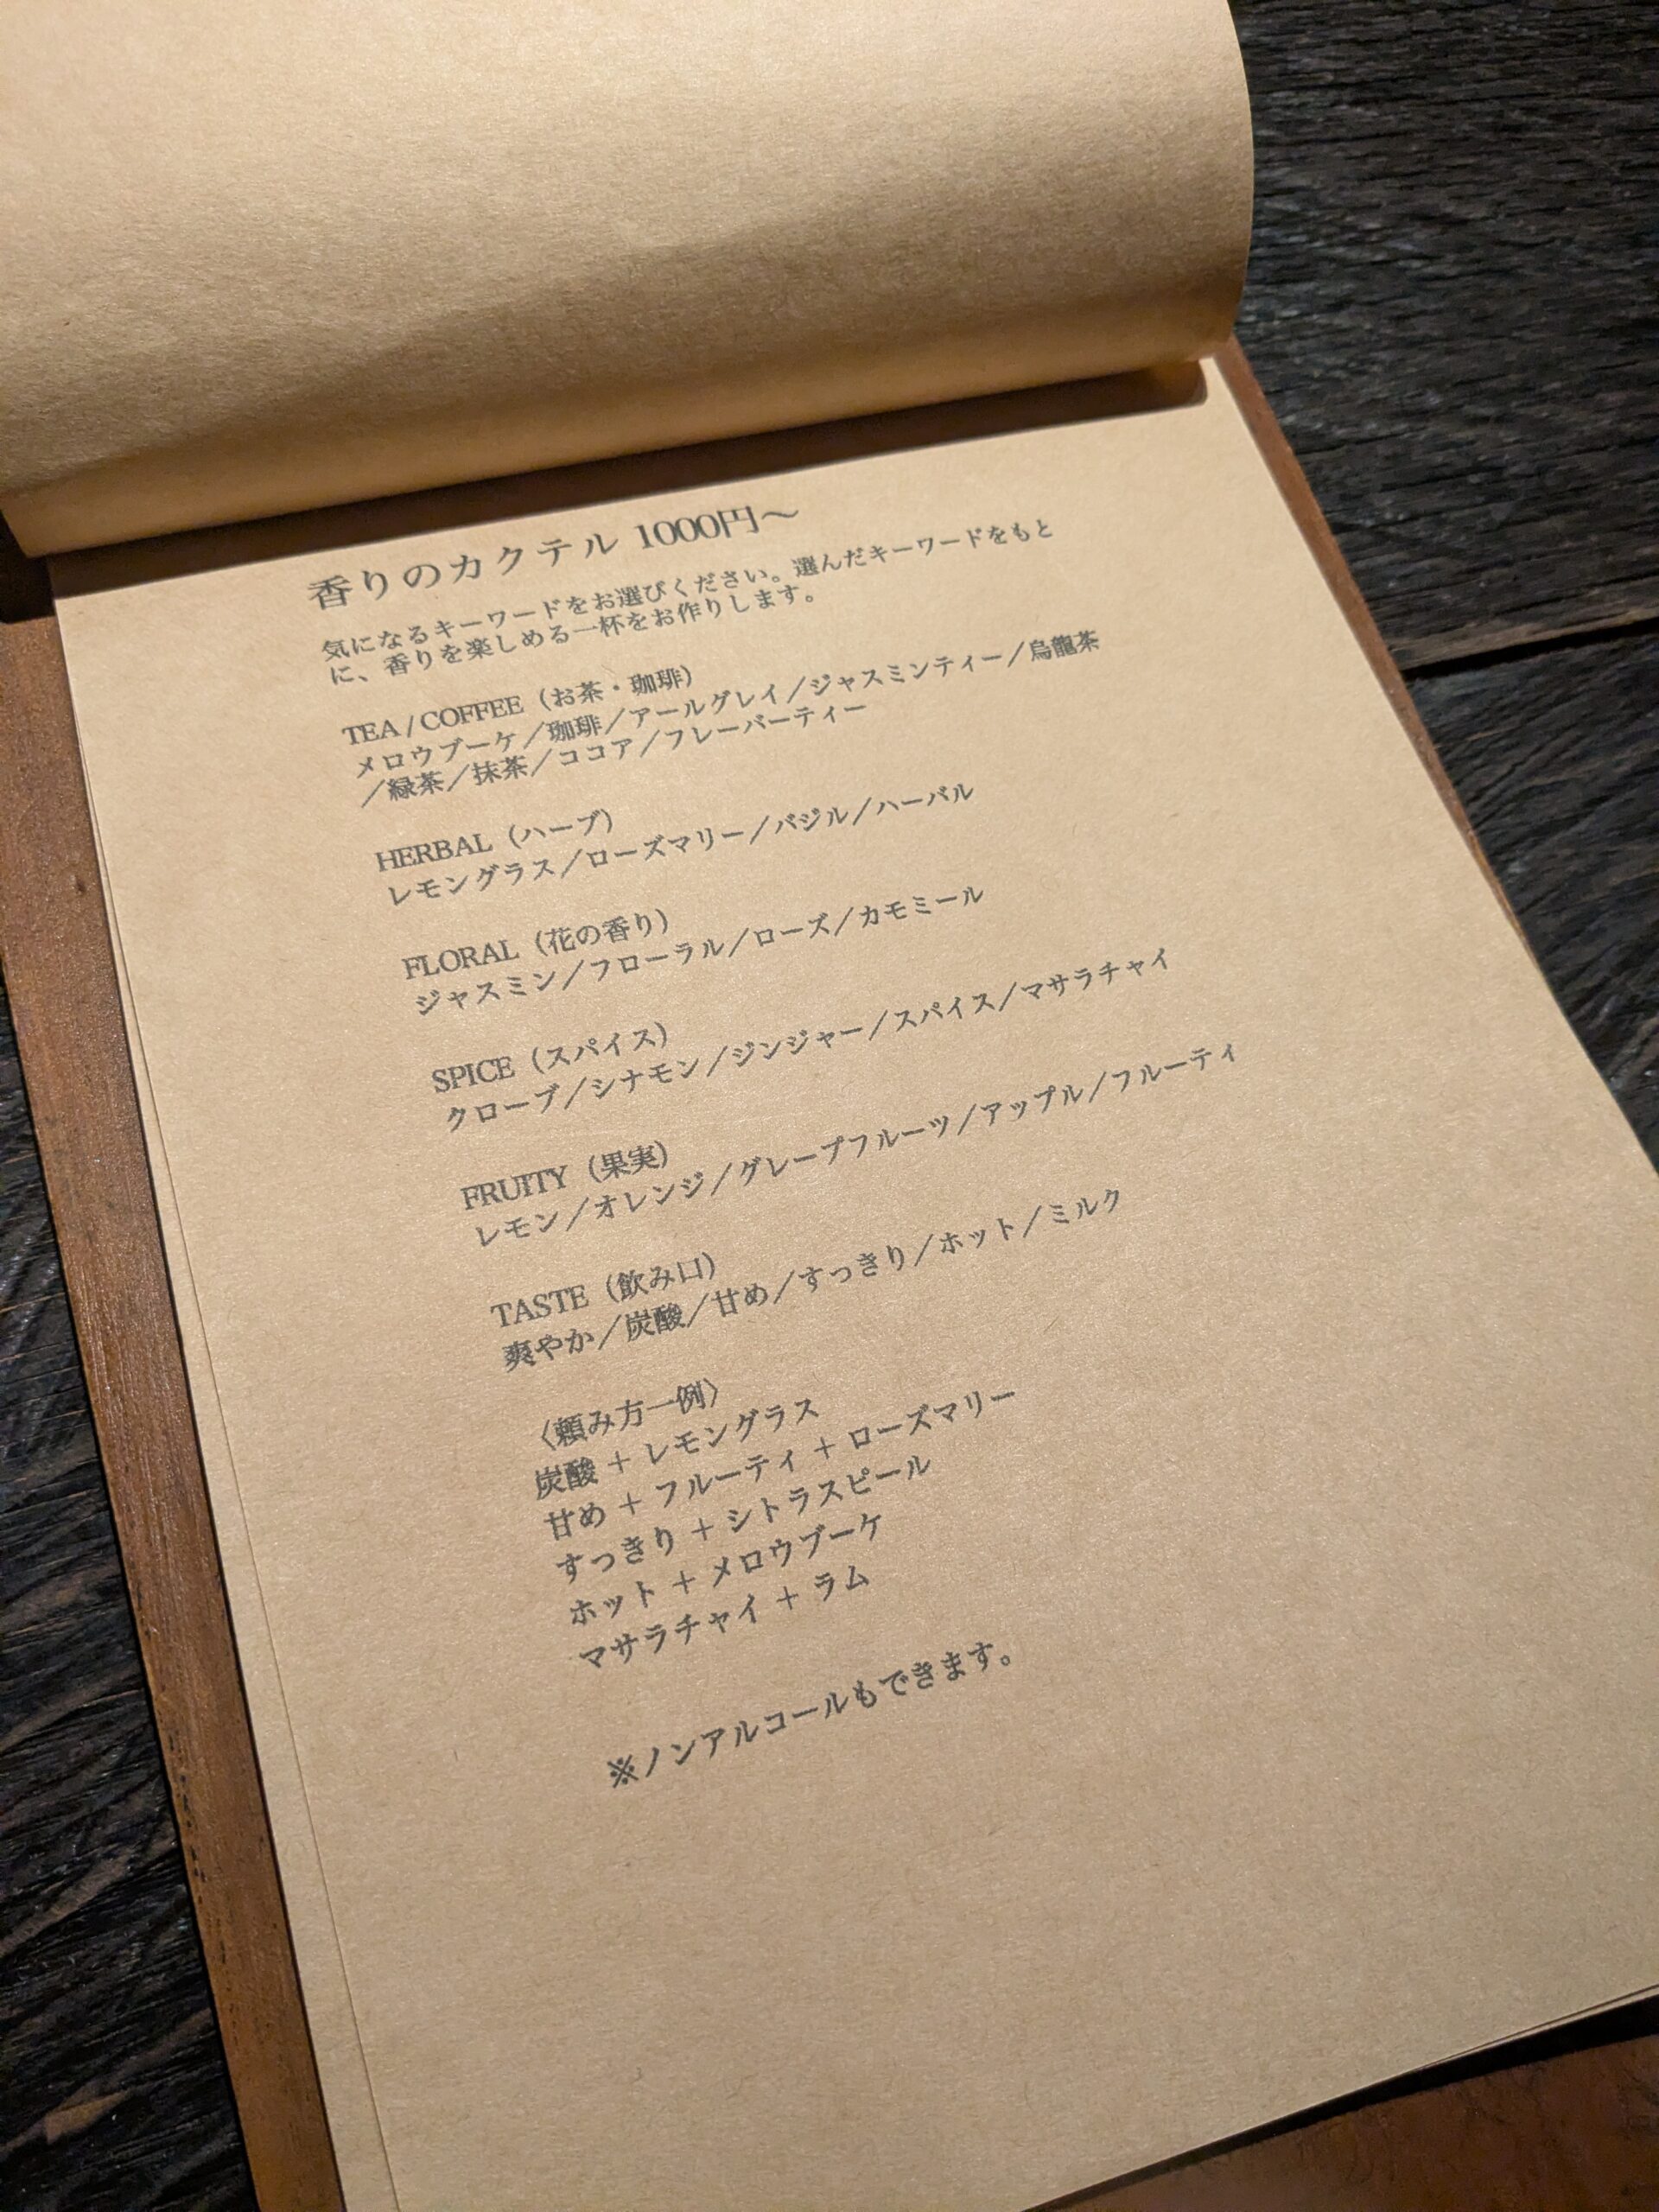 香りのカクテル 1000円～
気になるキーワードをお選びください。選んだキーワードをもと
に、香りを楽しめる一杯をお作りします。
TEA / COFFEE（お茶・珈琲）
メロウブーケ／珈琲／アールグレイ／ジャスミンティー／烏龍茶
／緑茶／抹茶／ココア／フレーバーティー
HERBAL（ハーブ）
レモングラス／ローズマリー／バジル／ハーバル
FLORAL（花の香り）
ジャスミン／フローラル／ローズ／カモミール
SPICE（スパイス）
クローブ／シナモン／ジンジャー／スパイス／マサラチャイ
FRUITY（果実）
レモン／オレンジ／グレープフルーツ／アップル／フルーティ
TASTE（飲み口）
爽やか／炭酸／甘め／すっきり／ホット／ミルク
〈頼み方一例〉
炭酸 + レモングラス
甘め + フルーティ + ローズマリー
すっきり + シトラスピール
ホット + メロウブーケ
マサラチャイ + ラム
※ノンアルコールもできます。